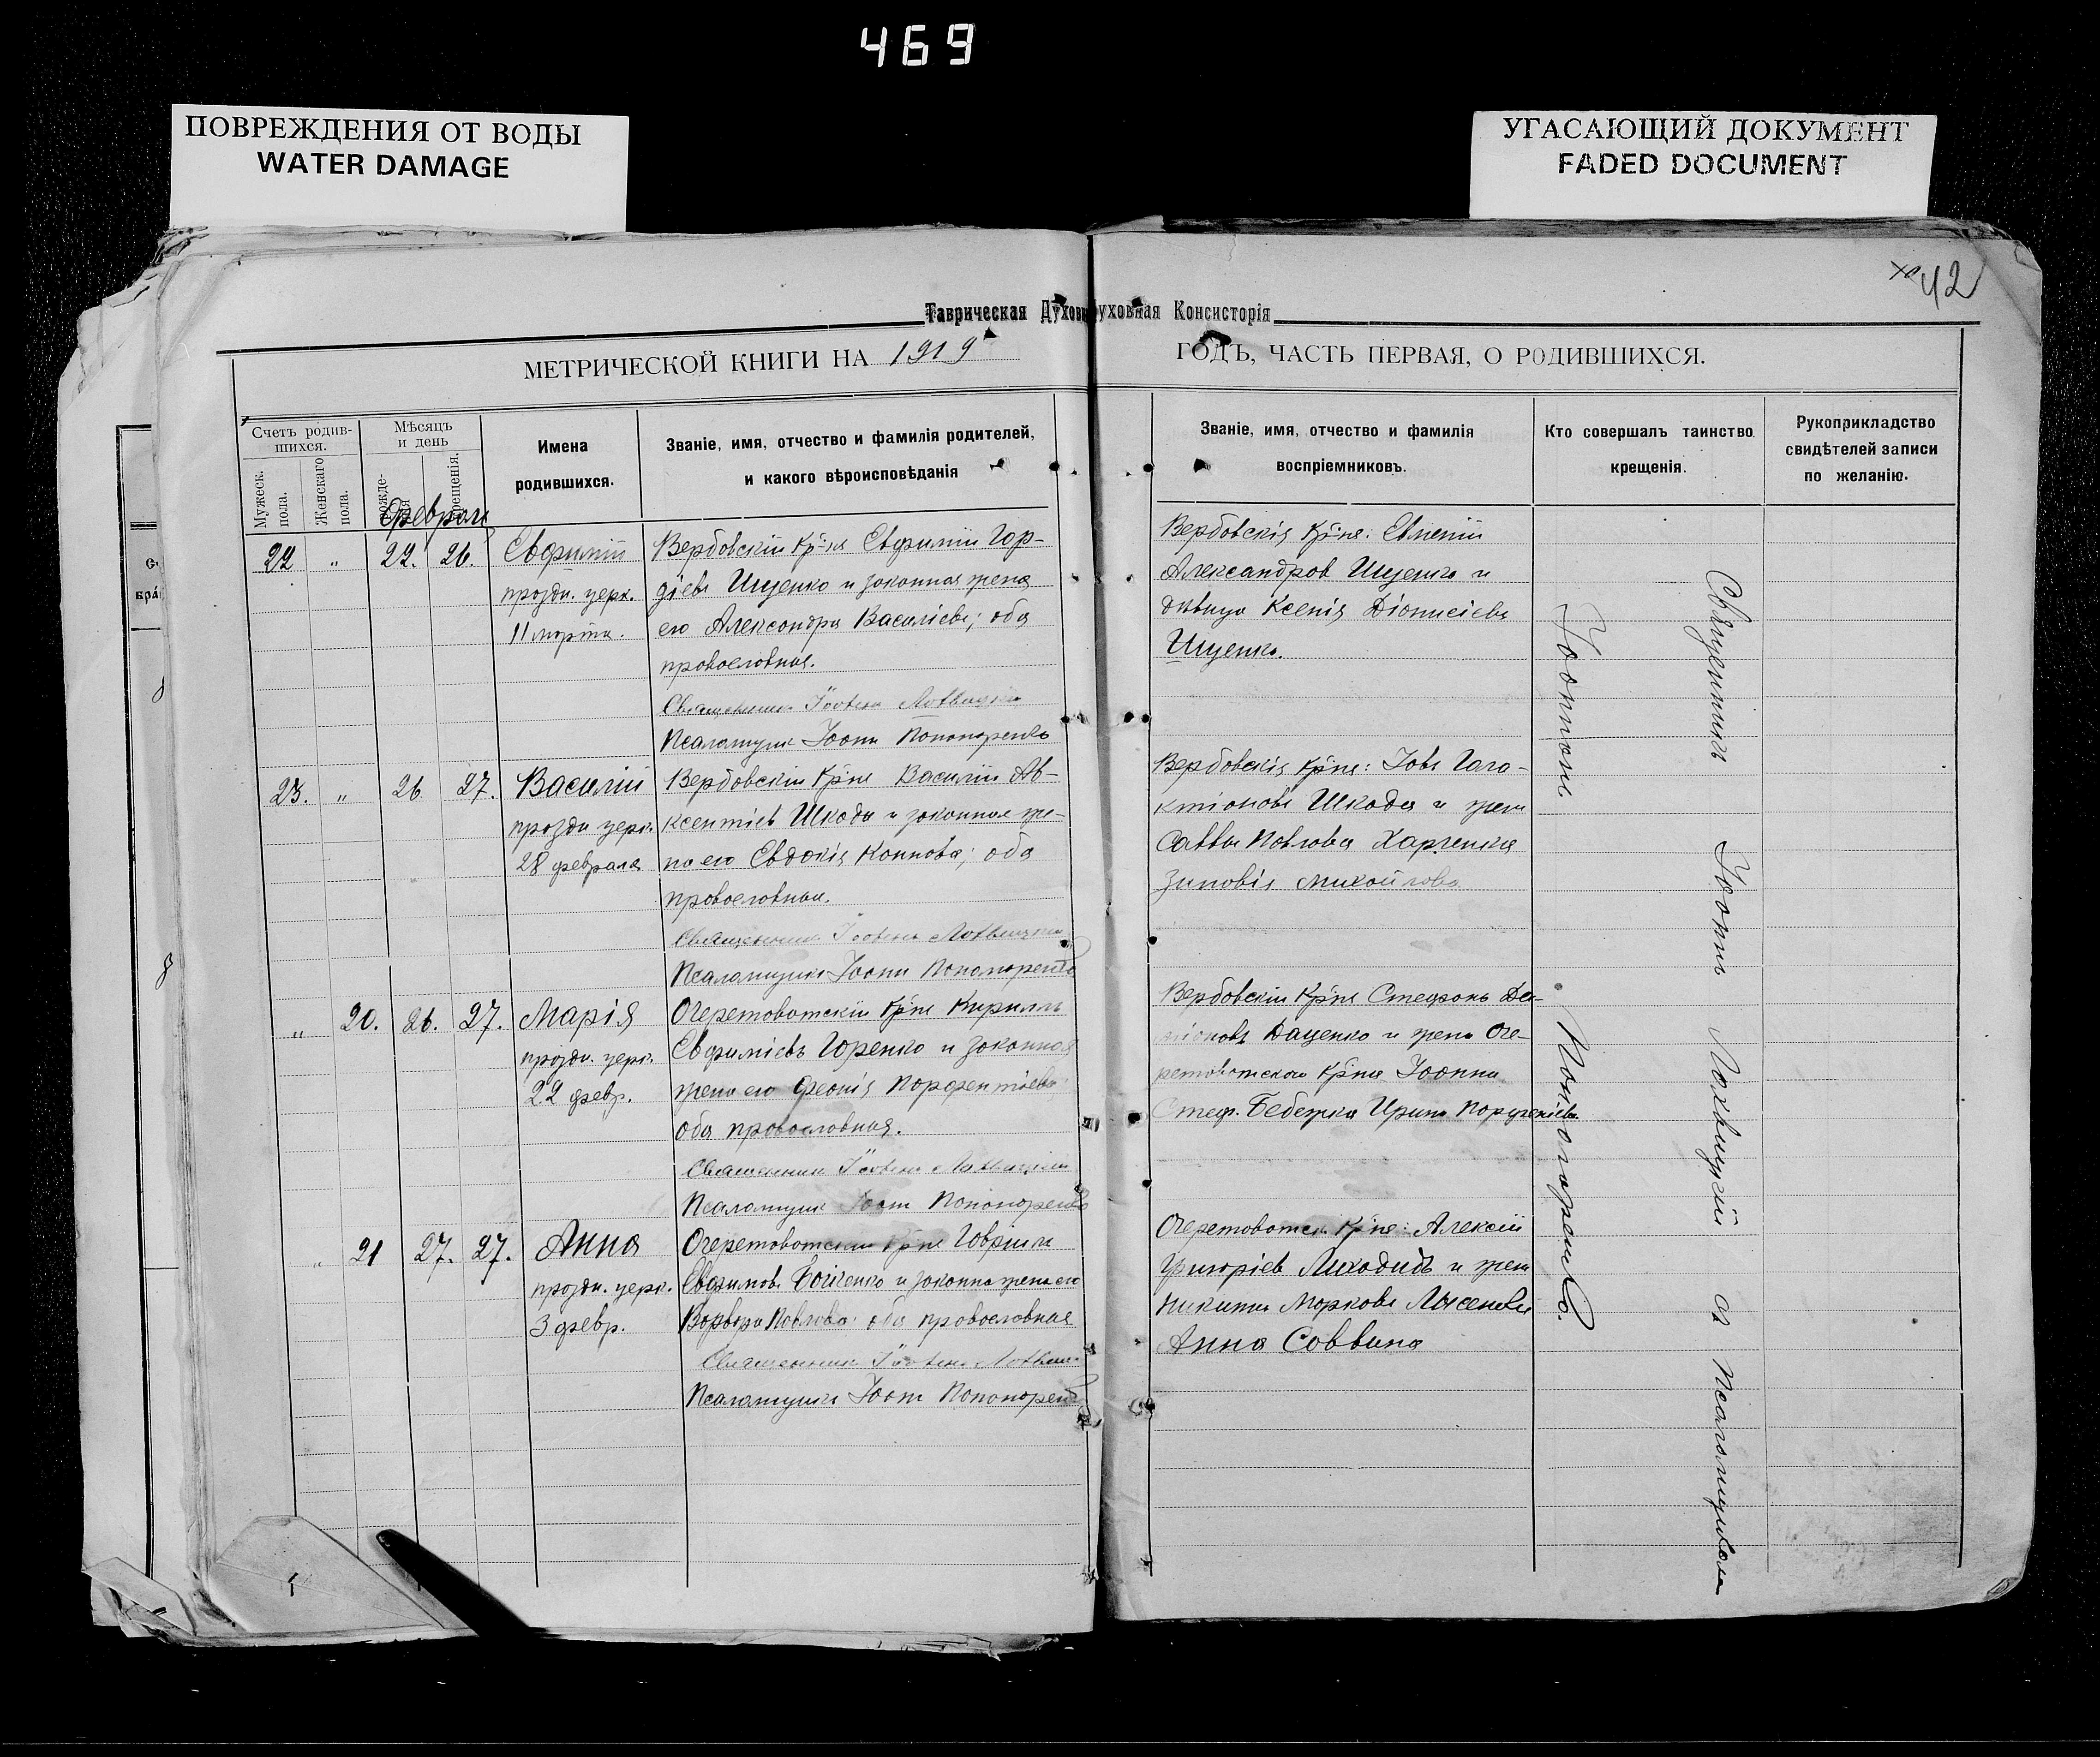 469
ПОВРЕЖДЕНИЯ ОТ ВОДЫ
WATER DAMAGE
УГАСАЮЩИЙ ДОКУМЕНТ
FADED DOCUMENT
42
Таврическая Духовн
уховная Консисторія
МЕТРИЧЕСКОЙ КНИГИ НА 1919
ГОДЪ, ЧАСТЬ ПЕРВАЯ, О РОДИВШИХСЯ.
Счетъ родив-
шихся.
Мужеск.
пола.
Женскаго
пола.
Мѣсяцъ
и день
рожде-
нія
крещенія.
Имена
родившихся.
Званіе, имя, отчество и фамилія родителей,
и какого вѣроисповѣданія
Званіе, имя, отчество и фамилія
воспріемниковъ.
Кто совершалъ таинство
крещенія.
Рукоприкладство
свидѣтелей записи
по желанію.
Февраль
22 " 22. 26. Евфимій
праздн. церк.
11 марта.
Вербовскій кр-нъ Евфимій Гор-
діевъ Ищенко и законная жена
его Александра Васильева; оба
православные.
Священникъ Іоаннъ Лохвицкій
Псаломщикъ Іоаннъ Пономаренко
Вербовскія кр-не: Евмений
Александров Ищенко и
дѣвица Ксенія Діонисіева
Ищенко.
23. " 26 27. Василій
праздн. церк.
28 февраля
Вербовскій кр-нъ Василій Ав-
ксентіев Шкода и законная же-
на его Евдокія Коннова; оба
православные.
Священникъ Іоаннъ Лохвицкій
Псаломщикъ Іоаннъ Пономаренко
Вербовскія кр-не: Іовъ Гала-
ктіоновъ Шкода и жена
Саввы Павлова Харченка
Зиновія Михайлова
" 20. 26. 27. Марія
праздн. церк.
22 февр.
Очеретоватскій кр-нъ Кириллъ
Евфиміевъ Горенко и законная
жена его Феонія Парфентіева
оба православные.
Священникъ Іоаннъ Лохвицкій
Псаломщикъ Іоаннъ Пономаренко
Вербовскій кр-нъ Стефанъ
Даценко и жена Оче-
ретоватскаго кр-на Іоанна
Стеф. Бебешка Ирина
" 21 27. 27. Анна
праздн. церк.
3 февр.
Очеретоватскій кр-нъ Гавріилъ
Евфимов. Бойченко и законна жена его
Варвара Павлова оба православные
Священникъ Іоаннъ
Псаломщикъ Іоаннъ Пономаренко
Очеретоватск. кр-не: Алексій
Григоріев Лиходидъ и жена
Никиты Маркова
Анна Саввина
Священникъ Іоаннъ Лохвицкій съ Псаломщикомъ
Іоанномъ Пономаренко.